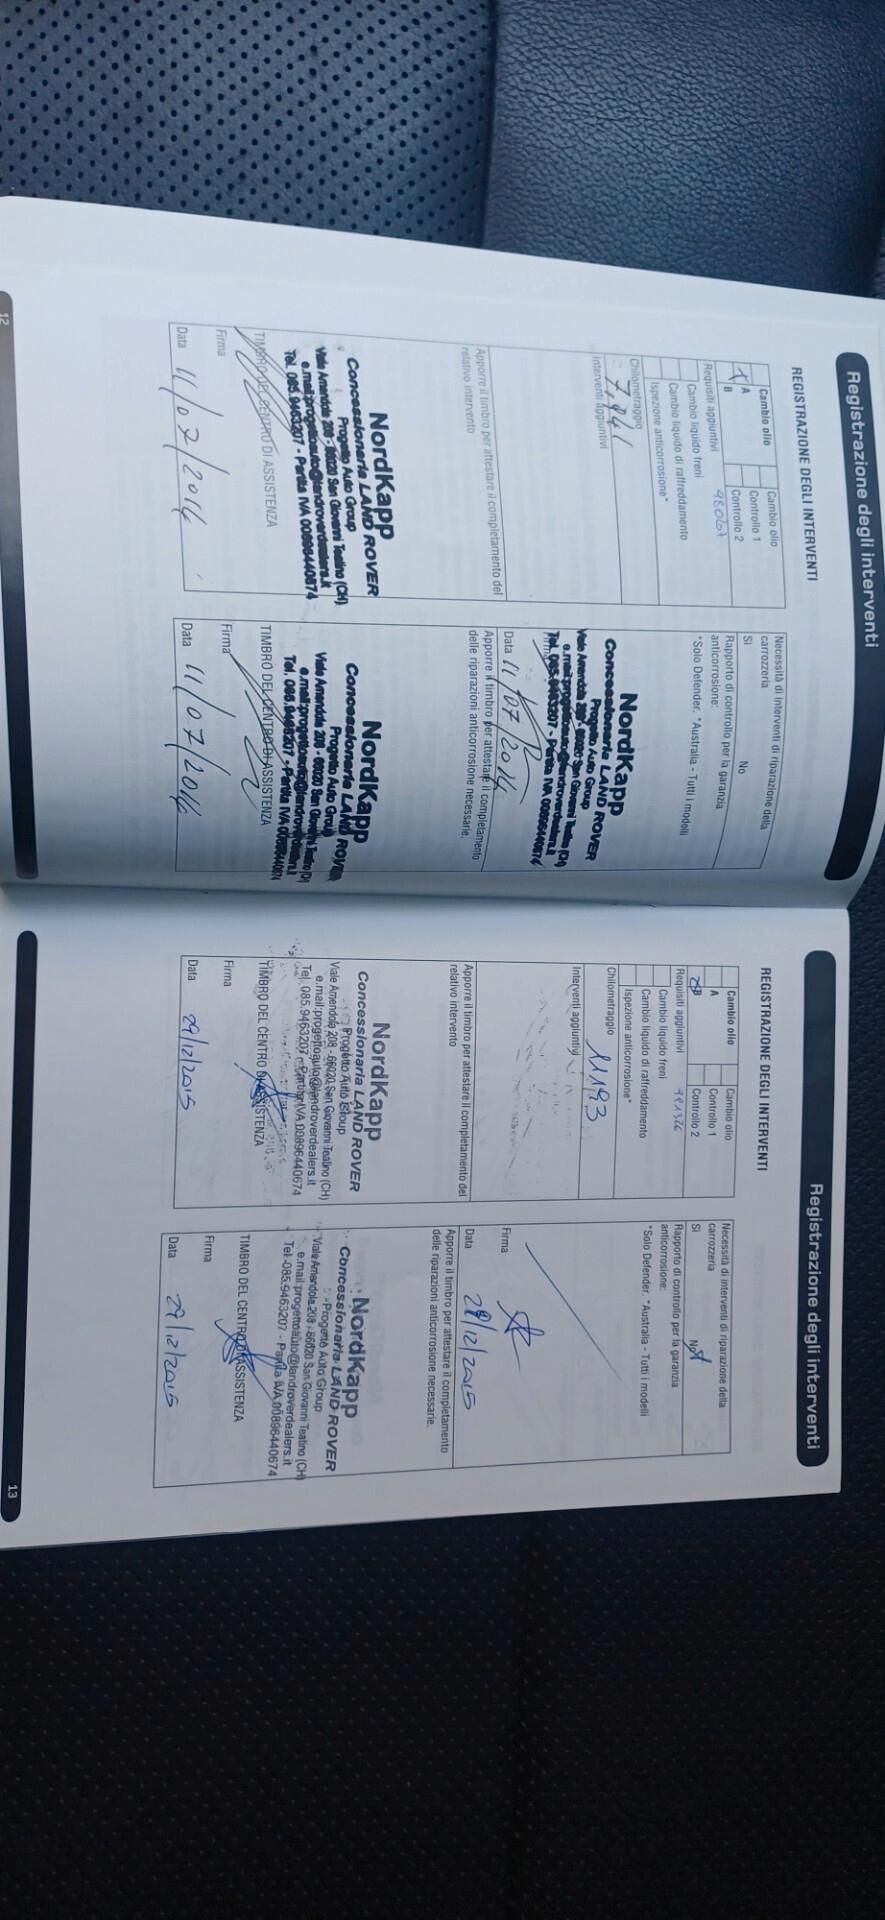 Registrazione degli interventi
REGISTRAZIONE DEGLI INTERVENTI
Cambio olio
Cambio olio
A
Controllo 1
B
Controllo 2
Requisiti aggiuntivi
Cambio liquido freni
Cambio liquido di raffreddamento
Ispezione anticorrosione*
Chilometraggio
Interventi aggiuntivi
Apporre il timbro per attestare il completamento del
relativo intervento
NordKapp
Concessionaria LAND ROVER
Progetto Auto Group
Viale Amendola 208 - 66020 San Giovanni Teatino (CH)
e.mail:progettoauto@landroverdealers.it
Tel. 085.9463207 - Partita IVA 00896440674
TIMBRO DEL CENTRO DI ASSISTENZA
Firma
Data 11/07/2014
Necessità di interventi di riparazione della
carrozzeria
Sì
No
Rapporto di controllo per la garanzia
anticorrosione:
*Solo Defender. *Australia - Tutti i modelli
NordKapp
Concessionaria LAND ROVER
Progetto Auto Group
Viale Amendola 208 - 66020 San Giovanni Teatino (CH)
e.mail:progettoauto@landroverdealers.it
Tel. 085.9463207 - Partita IVA 00896440674
Data 11/07/2014
Apporre il timbro per attestare il completamento
delle riparazioni anticorrosione necessarie.
NordKapp
Concessionaria LAND ROVER
Progetto Auto Group
Viale Amendola 208 - 66020 San Giovanni Teatino (CH)
e.mail:progettoauto@landroverdealers.it
Tel. 085.9463207 - Partita IVA 00896440674
TIMBRO DEL CENTRO DI ASSISTENZA
Firma
Data 11/07/2014
12
Registrazione degli interventi
REGISTRAZIONE DEGLI INTERVENTI
Cambio olio
Cambio olio
A
Controllo 1
B
Controllo 2
Requisiti aggiuntivi
Cambio liquido freni
Cambio liquido di raffreddamento
Ispezione anticorrosione*
Chilometraggio
11193
Interventi aggiuntivi
Apporre il timbro per attestare il completamento del
relativo intervento
NordKapp
Concessionaria LAND ROVER
Progetto Auto Group
Viale Amendola 208 - 66020 San Giovanni Teatino (CH)
e.mail:progettoauto@landroverdealers.it
Tel. 085.9463207 - Partita IVA 00896440674
TIMBRO DEL CENTRO DI ASSISTENZA
Firma
Data 29/12/2015
Necessità di interventi di riparazione della
carrozzeria
Sì
No
Rapporto di controllo per la garanzia
anticorrosione:
*Solo Defender. *Australia - Tutti i modelli
Firma
Data 29/12/2015
Apporre il timbro per attestare il completamento
delle riparazioni anticorrosione necessarie.
NordKapp
Concessionaria LAND ROVER
Progetto Auto Group
Viale Amendola 208 - 66020 San Giovanni Teatino (CH)
e.mail:progettoauto@landroverdealers.it
Tel. 085.9463207 - Partita IVA 00896440674
TIMBRO DEL CENTRO DI ASSISTENZA
Firma
Data 29/12/2015
13